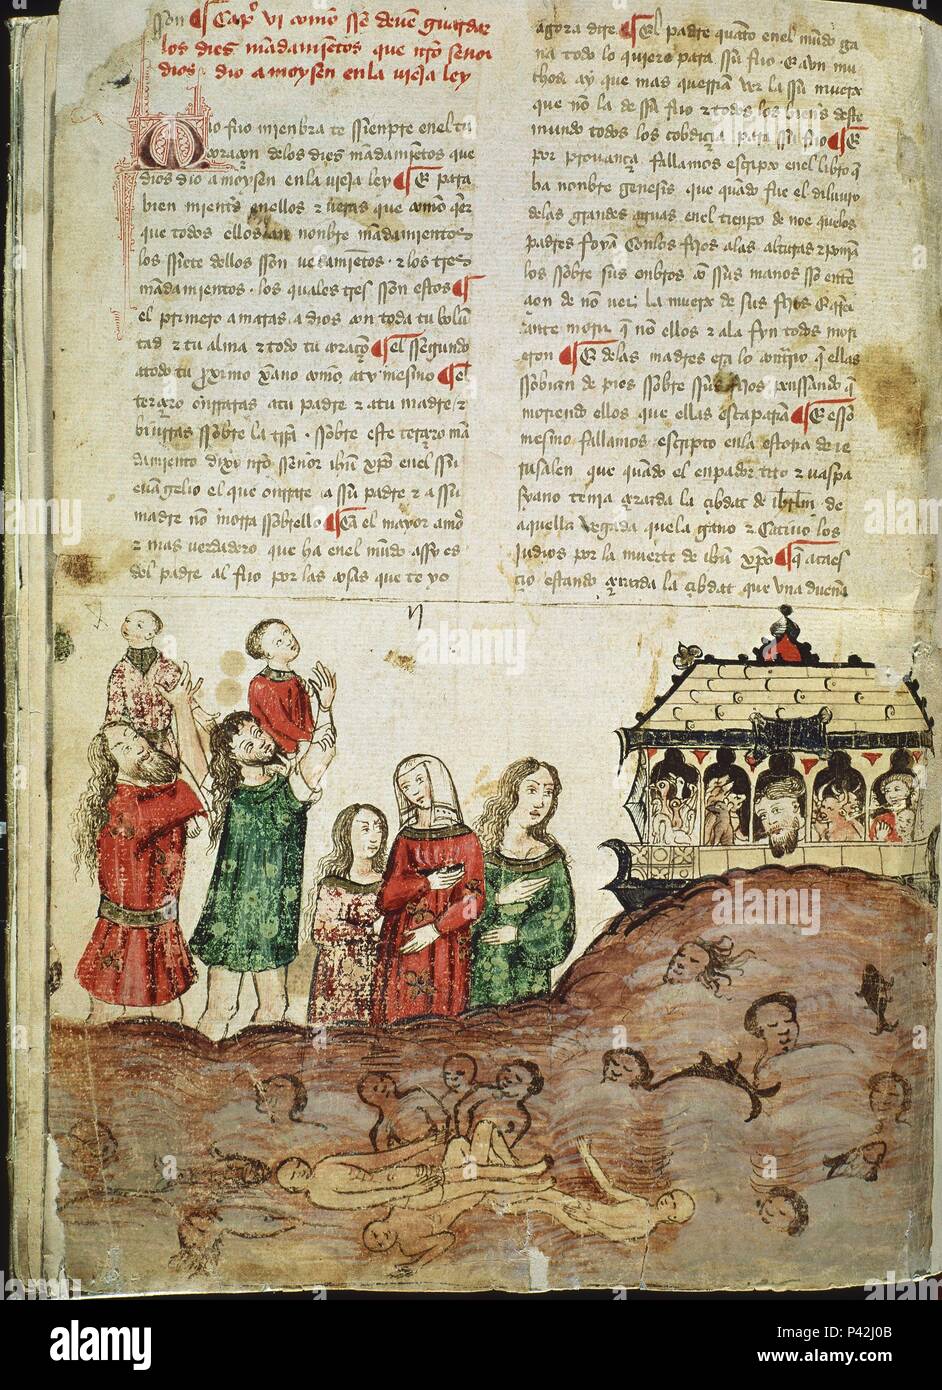 sson ¶ Capº vi como sse deuẽ guardar
los dies mãdamiẽtos que nr̃o señor
dios dio a moysen en la uieja ley
Mio fijo miembra te sienpre enel tu
coraçõ delos dies mãdamiẽtos que
dios dio a moysen enla uieja ley ¶ E para
bien mientes enellos z ueras que como q̃er
que todos ellos an nonbre mãdamientos
los siete dellos sson uedamiẽtos z los tres
mãdamientos los quales tres sson estos ¶
el primero amaras a dios con toda tu uolũ
tad z tu alma z todo tu coraçõ ¶ el ssegundo
a todo tu proximo xp̃iano como a ty mesmo ¶ el
terçero onrraras a tu padre z a tu madre z
biuras ssobre la tr̃ra ssobre este terçero mã
damiento dixo nr̃o sseñor ihũ xp̃o enel ssu
euangelio el que onrrare a ssu padre z a ssu
madre nõ morra ssobrello ¶ Ca el mayor amor
z mas verdadero que ha enel mũdo asy es
del padre al fijo por las cosas que te yo
agora dire ¶ El padre quãto enel mũdo ga
na todo lo quiere para ssu fijo z aun mu
chos ay que mas querriã ver la ssu muerte
que nõ la de ssu fijo z todos los bienes deste
mundo todos los cobdiçia para ssu fijo ¶ E
por prouança fallamos escripto enel libro q̃
ha nonbre genesis que quãdo fue el diluuio
delas grandes aguas enel tienpo de noe que los
padres foyan con los fijos a las alturas z poniã
los ssobre sus onbros cõ ssus manos
de nõ uer la muerte de sus fijos
ante morir q̃ nõ ellos z ala fyn todos mori
eron ¶ E delas madres era lo contrario q̃ ellas
ssobian de pies ssobre ssus fijos penssando q̃
moriendo ellos que ellas escaparian ¶ E esso
mesmo fallamos escripto enla estoria de ie
rusalen que quãdo el enperador tito z uaspa
syano tenia çercada la çibdat de ihrlm de
aquella vegada que la gano z catiuo los
judios por la muerte de ihũ xp̃o ¶ que acaes
çio estando çercada la çibdat que vna dueña
alamy stock photo
P42J0B
www.alamy.com